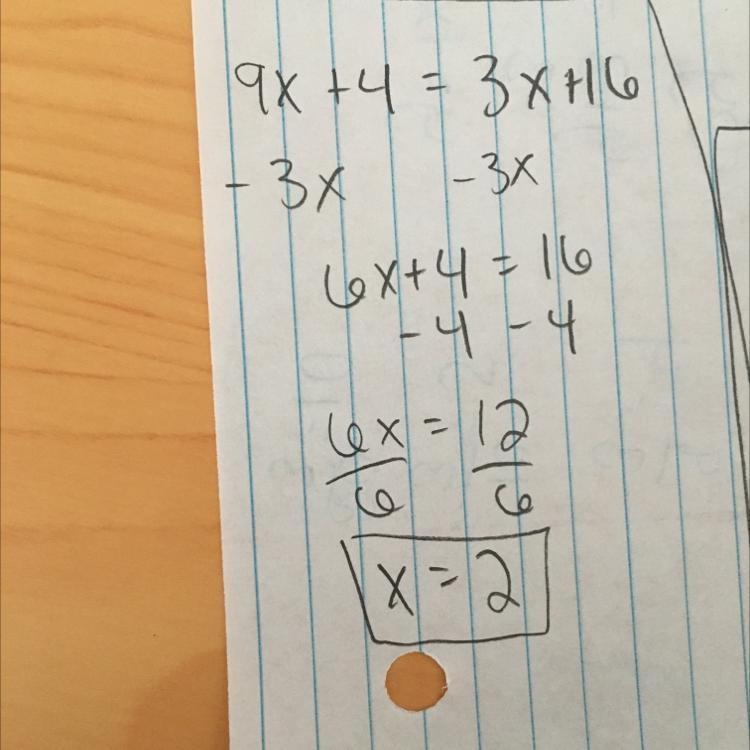 9x + 4 = 3x + 16
- 3x - 3x
6x + 4 = 16
- 4 - 4
6x = 12
6 6
x = 2